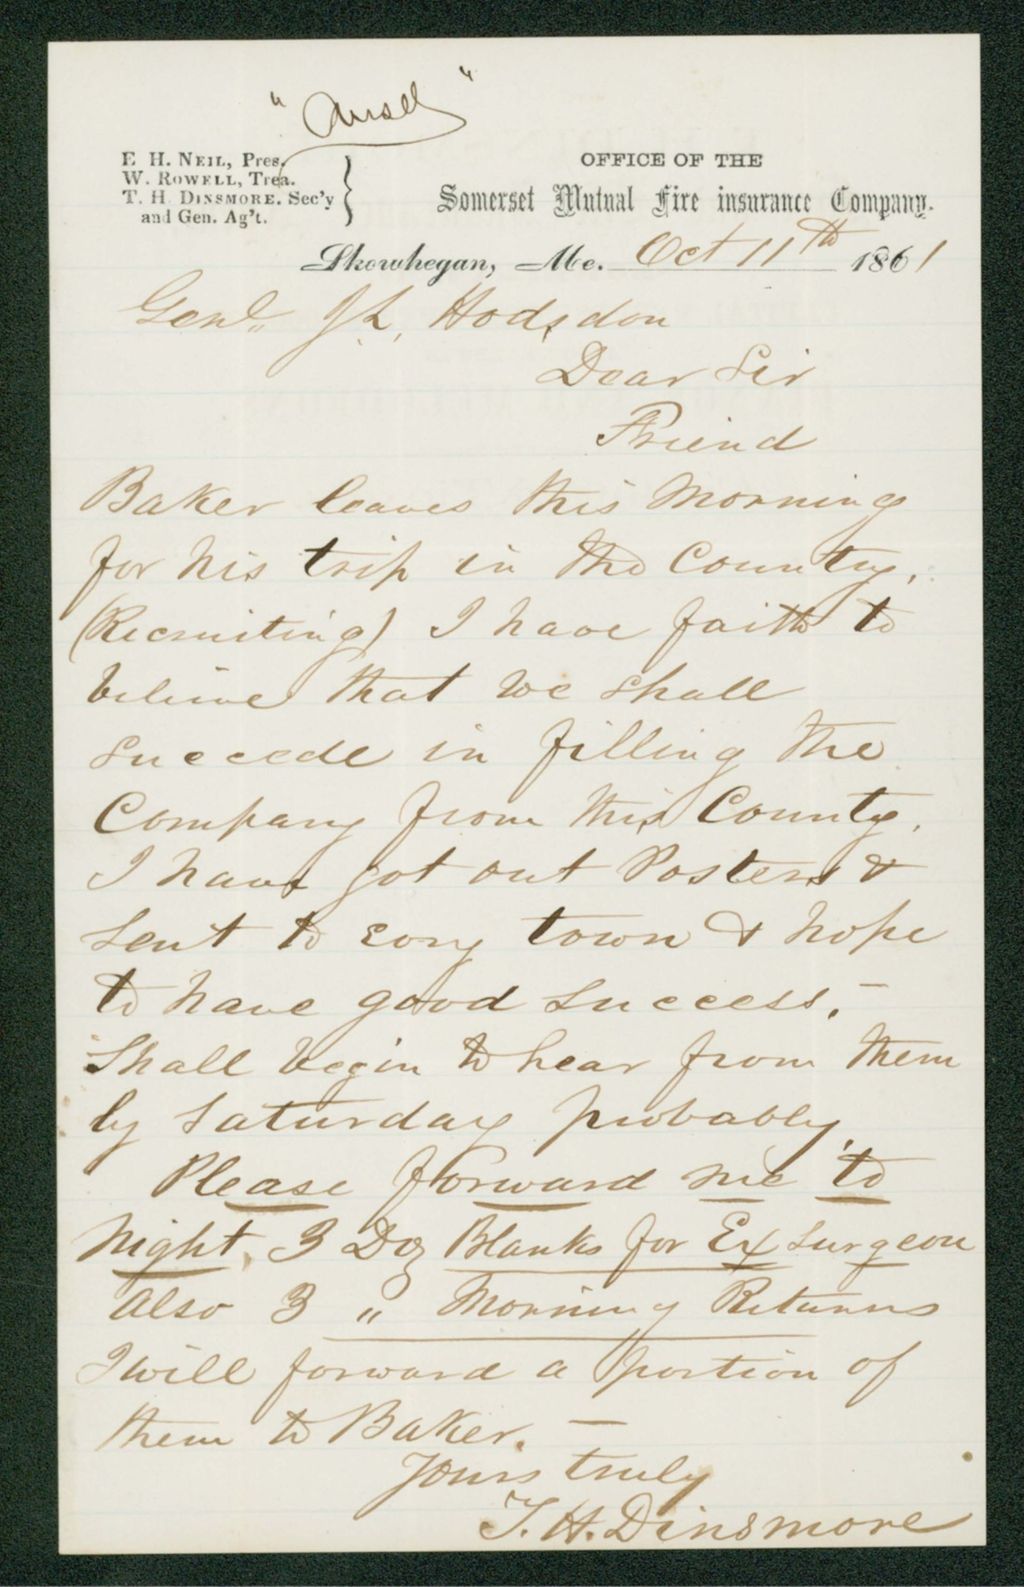 " Ansd "
E. H. NEIL, Pres.
W. ROWELL, Trea.
T. H. DINSMORE. Sec'y
and Gen. Ag't.
OFFICE OF THE
Somerset Mutual Fire insurance Company.
Skowhegan, Me. Oct 11th 1861
Genl. J L. Hodsdon
Dear Sir
Friend
Baker leaves this Morning
for his trip in the County,
(Recruiting) I have faith to
believe that we shall
Succede in filling the
Company from this County.
I have got out Posters &
Sent to evry town & hope
to have good Success. -
Shall begin to hear from them
by Saturday probably.
Please forward me to
Night, 3 Doz Blanks for Ex Surgeon
Also 3 " Morning Returns
I will forward a portion of
them to Baker. -
Yours truly
T. H. Dinsmore